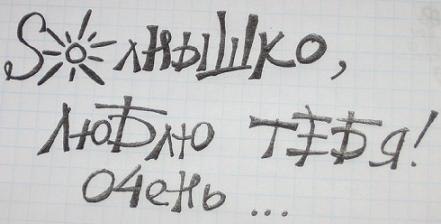 SОлнышко,
люблю тебя!
очень ...